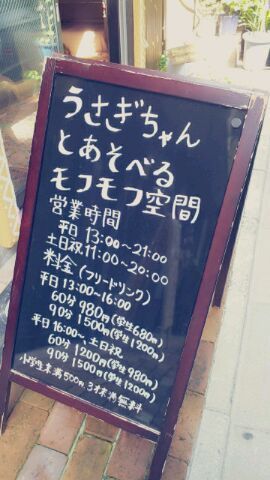 うさぎちゃん
とあそべる
モフモフ空間
営業時間
平日 13:00〜21:00
土日祝 11:00〜20:00
料金 (フリードリンク)
平日 13:00〜16:00
60分 980円 (学生680円)
90分 1500円 (学生1200円)
平日 16:00〜、土日祝
60分 1200円 (学生980円)
90分 1500円 (学生1200円)
小学生未満500円、3才未満無料